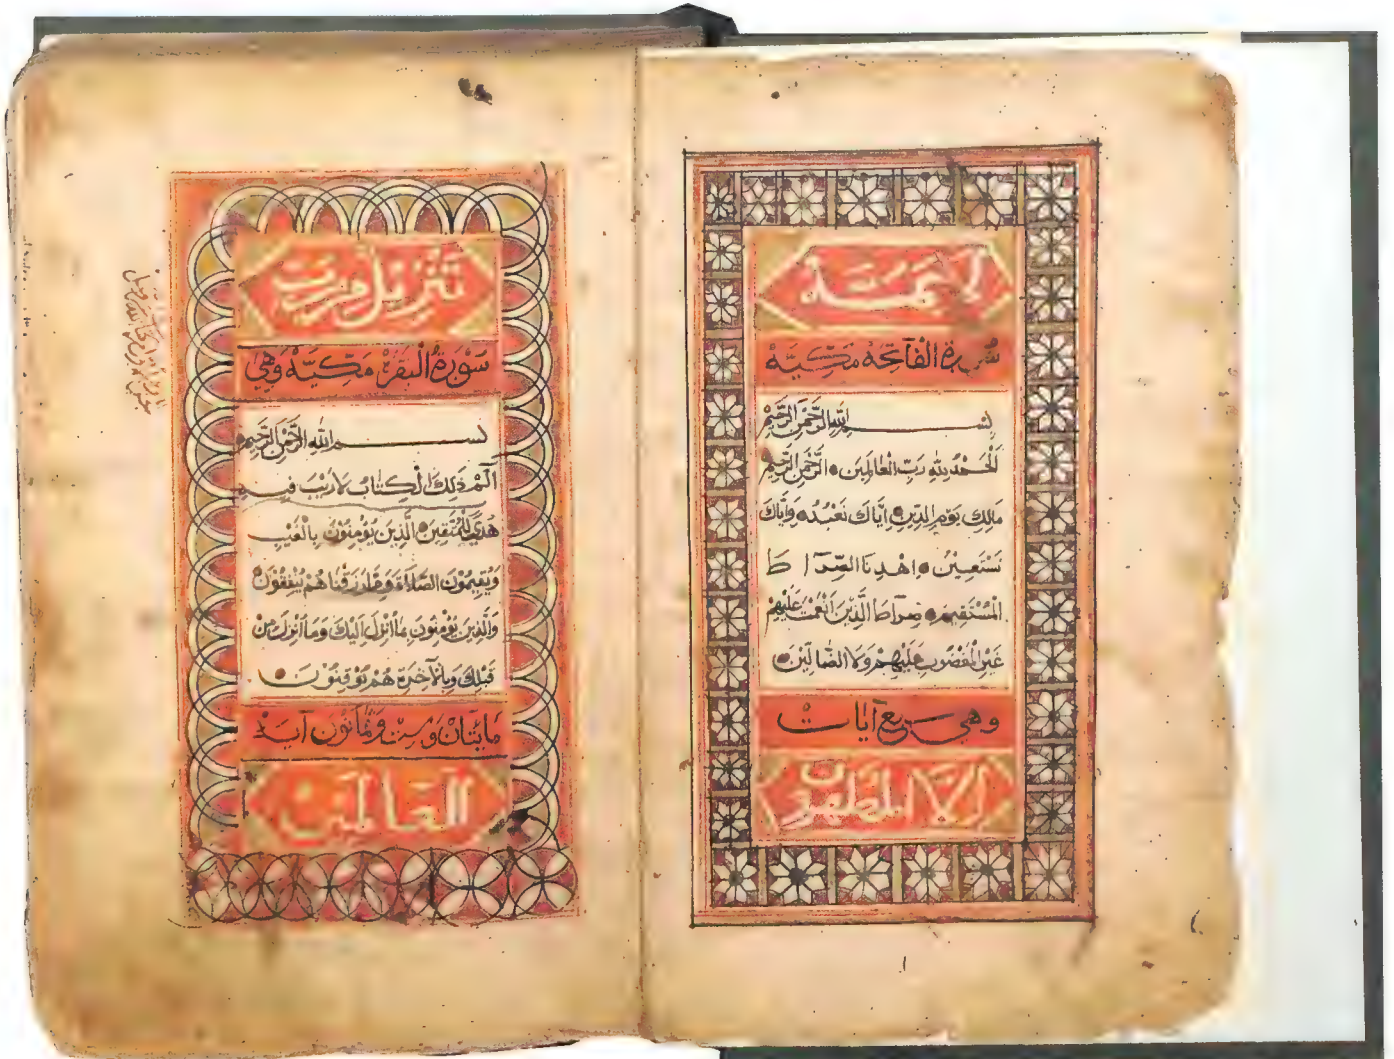 لا يمسه
سورة الفاتحة مكية
بسم الله الرحمن الرحيم
الحمد لله رب العالمين الرحمن الرحيم
مالك يوم الدين اياك نعبد واياك
نستعين اهدنا الصرا ط
المستقيم صراط الذين انعمت عليهم
غير المغضوب عليهم ولا الضالين
وهي سبع آيات
الا المطهرون
تنزيل من رب
سورة البقرة مكية وهي
بسم الله الرحمن الرحيم
الم ذلك الكتاب لا ريب فيه
هدى للمتقين الذين يؤمنون بالغيب
ويقيمون الصلاة ومما رزقناهم ينفقون
والذين يؤمنون بما انزل اليك وما انزل من
قبلك وبالآخرة هم يوقنون
مائتان وست وثمانون آية
العالمين
١